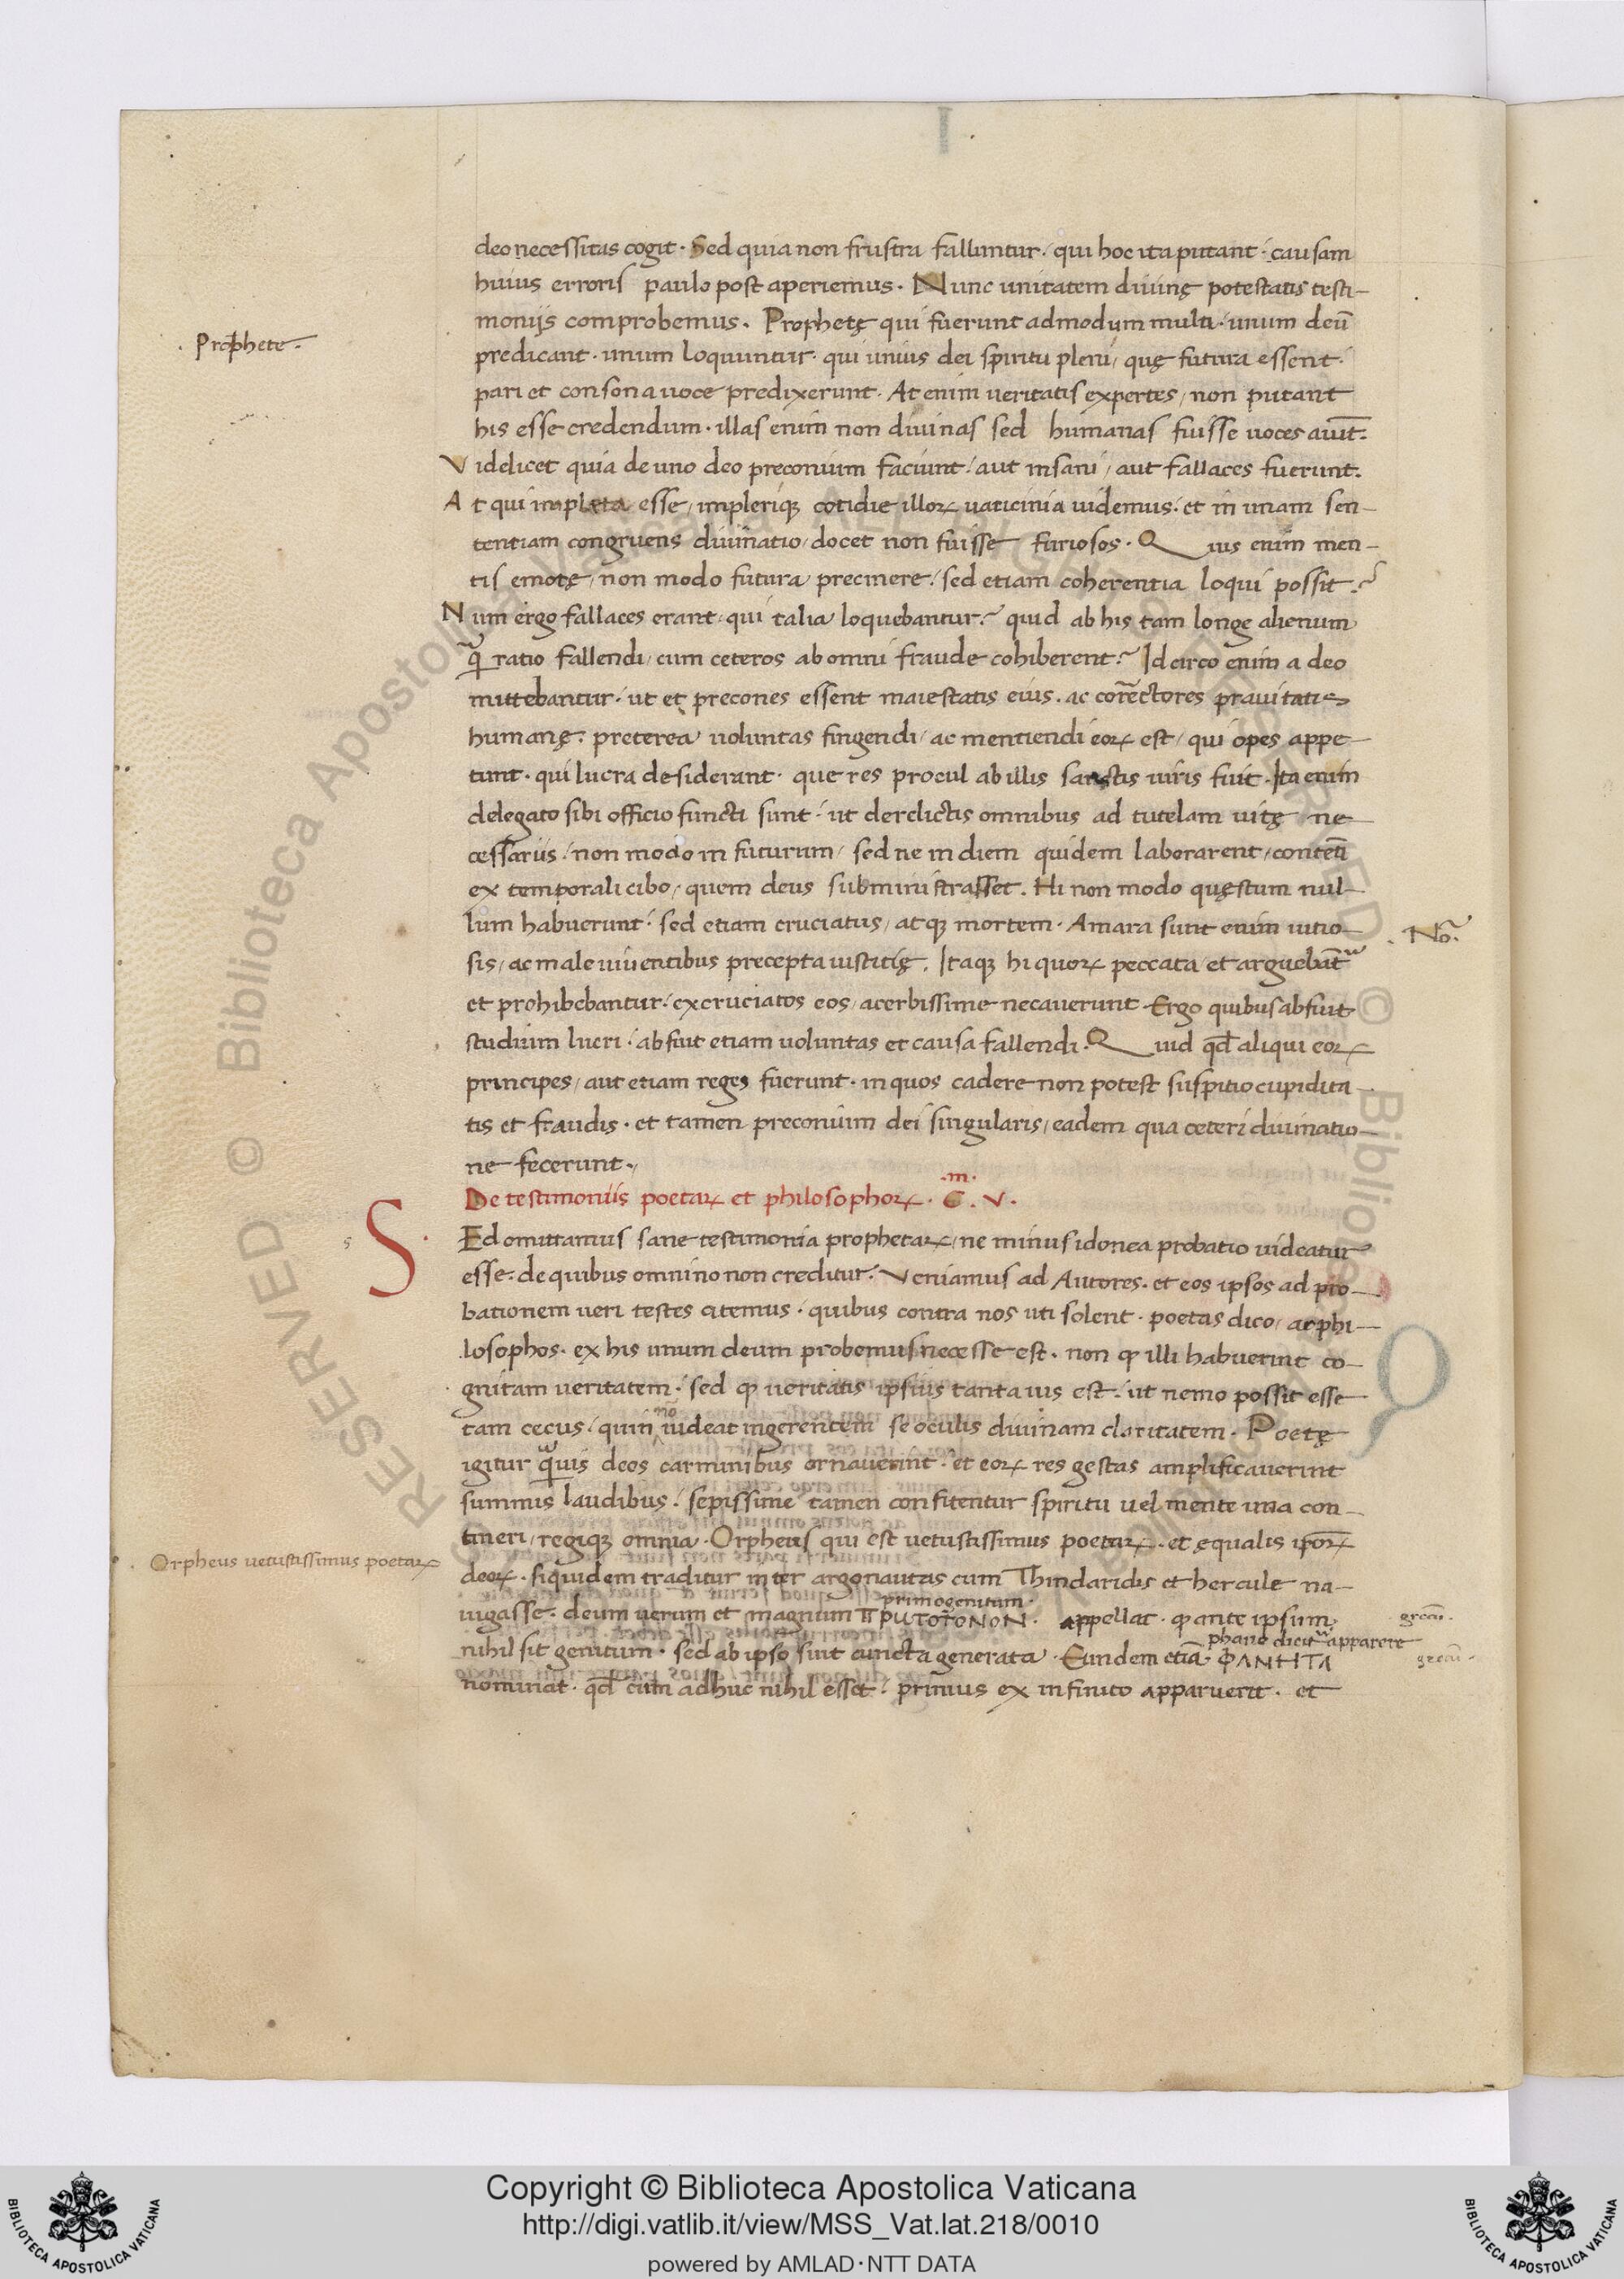 I
deo necessitas cogit. Sed quia non frustra falluntur. qui hoc ita putant. causam
huius erroris paulo post aperiemus. Nunc unitatem diuinę potestatis testi-
moniis comprobemus. Prophetę qui fuerunt admodum multi. unum deū
Prophete.
predicant. unum loquuntur. qui unius dei spiritu pleni, quę futura essent.
pari et consona uoce predixerunt. At enim ueritatis expertes, non putant
his esse credendum. illas enim non diuinas sed humanas fuisse uoces aiūt.
Videlicet quia de uno deo preconium faciunt, aut insani, aut fallaces fuerunt.
At qui impleta esse, implerique cotidie illoꝝ uaticinia uidemus. et in unam sen-
tentiam congruens diuinatio, docet non fuisse furiosos. Quis enim men-
tis emotę, non modo futura precinere, sed etiam coherentia loqui possit?
Num ergo fallaces erant, qui talia loquebantur? quid ab his tam longe alienum
q̃ ratio fallendi, cum ceteros ab omni fraude cohiberent? Idcirco enim a deo
mittebantur. ut et precones essent maiestatis eius. ac correctores prauitatis
humanę. preterea uoluntas fingendi, ac mentiendi eoꝝ est, qui opes appe-
tunt. qui lucra desiderant. que res procul ab illis sanctis uiris fuit. Ita enim
delegato sibi officio functi sunt. ut derelictis omnibus ad tutelam uitę ne-
cessariis. non modo in futurum, sed ne in diem quidem laborarent, contēti
ex temporali cibo, quem deus subministrasset. Hi non modo quęstum nul-
lum habuerunt. sed etiam cruciatus, atque mortem. Amara sunt enim uitio-
No.
sis, ac male uiuentibus precepta iustitię. Itaque hi quoꝝ peccata, et arguebāt᷑
et prohibebantur. excruciatos eos, acerbissime necauerunt. Ergo quibus abfuit
studium lucri. abfuit etiam uoluntas et causa fallendi. Quid qd̄ aliqui eoꝝ
principes, aut etiam reges fuerunt. in quos cadere non potest suspitio cupidita-
tis et fraudis. et tamen preconium dei singularis, eadem qua ceteri diuinatio-
ne fecerunt.
De testimoniis poetaꝝ et philosophoꝝ. C. V.
.m.
s S
Ed omittamus sane testimonia prophetaꝝ, ne minus idonea probatio uideatur
esse. de quibus omnino non creditur. Veniamus ad Autores. et eos ipsos ad pro-
bationem ueri testes citemus. quibus contra nos uti solent. poetas dico, ac phi-
losophos. ex his unum deum probemus necesse est. non ꝙ illi habuerint co-
gnitam ueritatem. sed ꝙ ueritatis ipsius tanta uis est. ut nemo possit esse
tam cecus. quin uideat ingerentem se oculis diuinam claritatem. Poetę
nō
igitur q̃uis deos carminibus ornauerint. et eoꝝ res gestas amplificauerint
summis laudibus. sepissime tamen confitentur spiritu uel mente una con-
tineri, regique omnia. Orpheus qui est uetustissimus poetaꝝ. et ęqualis ipsoꝝ
Orpheus uetustissimus poetaꝝ
deoꝝ. siquidem traditur inter argonautas cum Thindaridis et hercule na-
primogenitum.
uigasse. deum uerum et magnum ΠΡUΤΟΓΟΝΟΝ. appellat. ꝙ ante ipsum
grecū.
phano dicit᷑ apparere
nihil sit genitum. sed ab ipso sint cuncta generata. Eundem etiā ΦΑΝΗΤΑ
grecū.
nominat. qd̄ cum adhuc nihil esset. primus ex infinito apparuerit. et
RESERVED © Biblioteca Apostolica Vaticana ALL RIGHTS RESERVED © Biblioteca Apostolica Vaticana
Copyright © Biblioteca Apostolica Vaticana
http://digi.vatlib.it/view/MSS_Vat.lat.218/0010
powered by AMLAD·NTT DATA
BIBLIOTECA APOSTOLICA VATICANA
BIBLIOTECA APOSTOLICA VATICANA